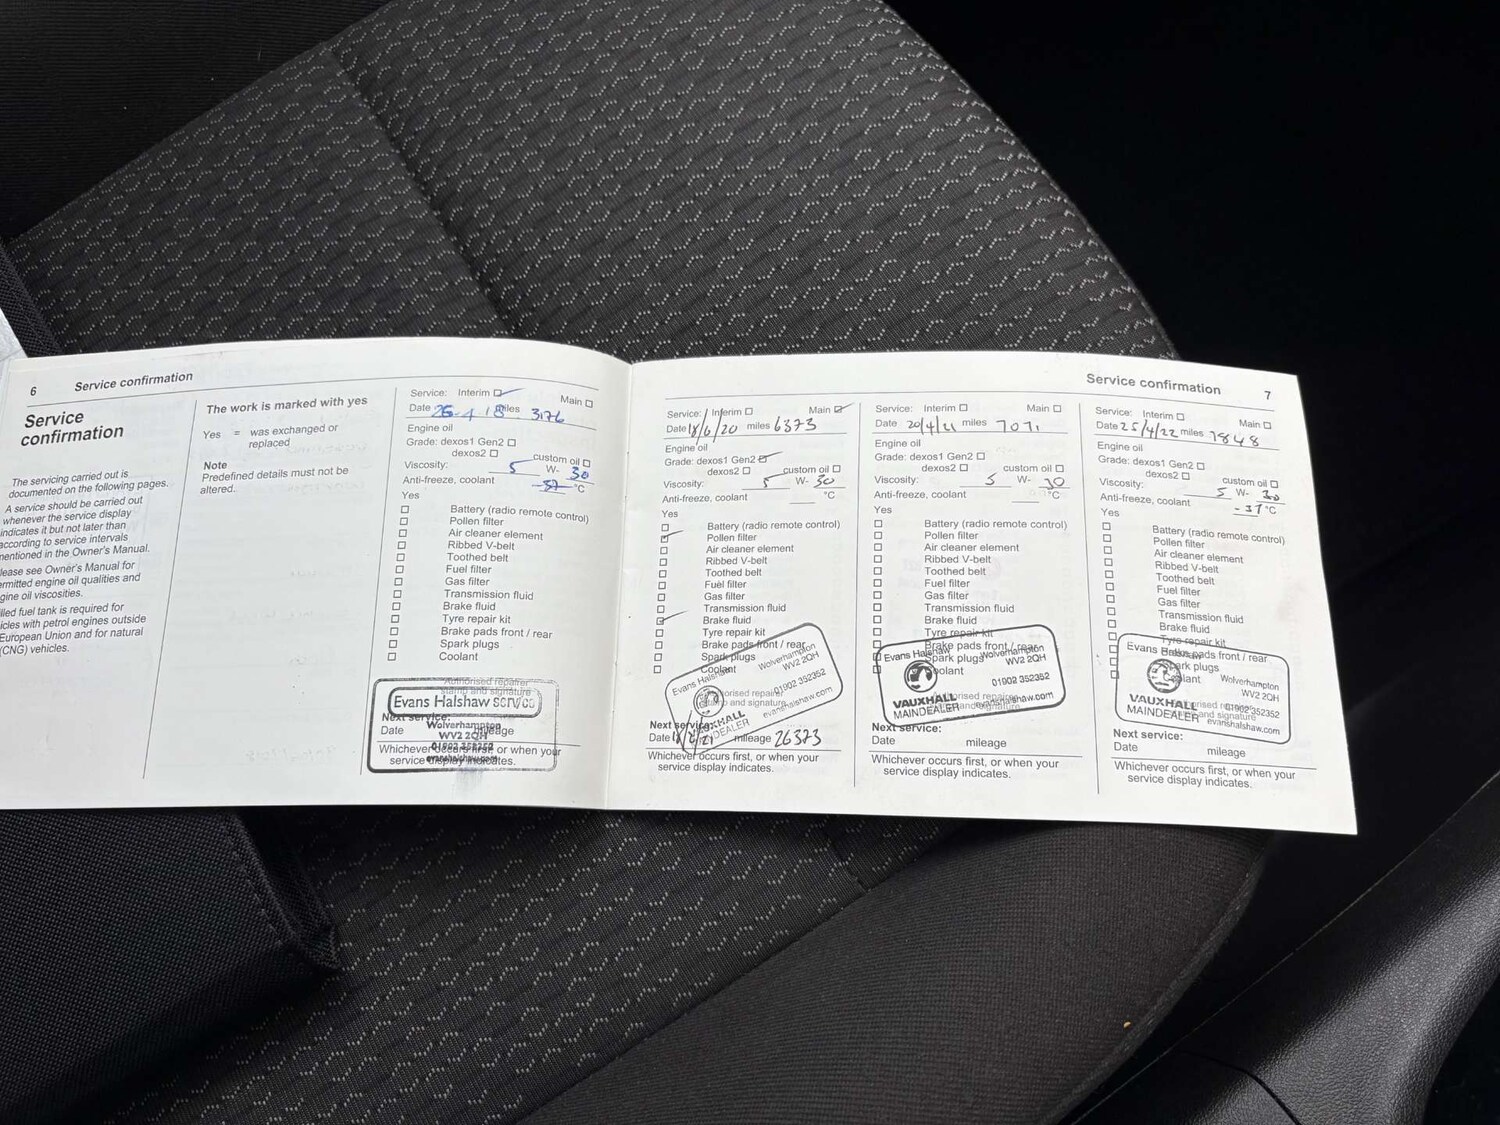 6 Service confirmation
Service
confirmation
The servicing carried out is
documented on the following pages.
A service should be carried out
whenever the service display
indicates it but not later than
according to service intervals
mentioned in the Owner's Manual.
Please see Owner's Manual for
permitted engine oil qualities and
engine oil viscosities.
filled fuel tank is required for
vehicles with petrol engines outside
European Union and for natural
(CNG) vehicles.
The work is marked with yes
Yes = was exchanged or
replaced
Note
Predefined details must not be
altered.
Service: Interim Main
Date 26-4 18 miles 3176
Engine oil
Grade: dexos1 Gen2
dexos2 custom oil
Viscosity: 5 W- 30
Anti-freeze, coolant -37 °C
Yes
Battery (radio remote control)
Pollen filter
Air cleaner element
Ribbed V-belt
Toothed belt
Fuel filter
Gas filter
Transmission fluid
Brake fluid
Tyre repair kit
Brake pads front / rear
Spark plugs
Coolant
Authorised repairer
stamp and signature
Evans Halshaw service
Wolverhampton
WV2 2QH
01902 352352
evanshalshaw.com
Next service:
Date mileage
Whichever occurs first, or when your
service display indicates.
Service confirmation 7
Service: Interim Main
Date 18/6/20 miles 6373
Engine oil
Grade: dexos1 Gen2
dexos2 custom oil
Viscosity: 5 W- 30
Anti-freeze, coolant °C
Yes
Battery (radio remote control)
Pollen filter
Air cleaner element
Ribbed V-belt
Toothed belt
Fuel filter
Gas filter
Transmission fluid
Brake fluid
Tyre repair kit
Brake pads front / rear
Spark plugs
Coolant
Authorised repairer
stamp and signature
Evans Halshaw
Wolverhampton
WV2 2QH
01902 352352
VAUXHALL
MAINDEALER
evanshalshaw.com
Next service:
Date mileage 26373
Whichever occurs first, or when your
service display indicates.
Service: Interim Main
Date 20/4/21 miles 7071
Engine oil
Grade: dexos1 Gen2
dexos2 custom oil
Viscosity: 5 W- 30
Anti-freeze, coolant °C
Yes
Battery (radio remote control)
Pollen filter
Air cleaner element
Ribbed V-belt
Toothed belt
Fuel filter
Gas filter
Transmission fluid
Brake fluid
Tyre repair kit
Brake pads front / rear
Spark plugs
Coolant
Authorised repairer
stamp and signature
Evans Halshaw
Wolverhampton
WV2 2QH
01902 352352
VAUXHALL
MAINDEALER
evanshalshaw.com
Next service:
Date mileage
Whichever occurs first, or when your
service display indicates.
Service: Interim Main
Date 25/4/22 miles 7848
Engine oil
Grade: dexos1 Gen2
dexos2 custom oil
Viscosity: 5 W- 30
Anti-freeze, coolant -37 °C
Yes
Battery (radio remote control)
Pollen filter
Air cleaner element
Ribbed V-belt
Toothed belt
Fuel filter
Gas filter
Transmission fluid
Brake fluid
Tyre repair kit
Brake pads front / rear
Spark plugs
Coolant
Authorised repairer
stamp and signature
Evans Halshaw
Wolverhampton
WV2 2QH
01902 352352
VAUXHALL
MAINDEALER
evanshalshaw.com
Next service:
Date mileage
Whichever occurs first, or when your
service display indicates.